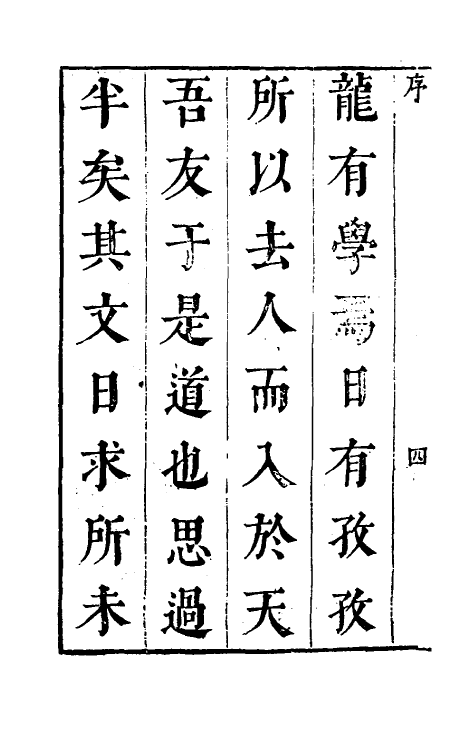 序
四
龍有學焉日有孜孜
所以去人而入於天
吾友于是道也思過
半矣其文日求所未